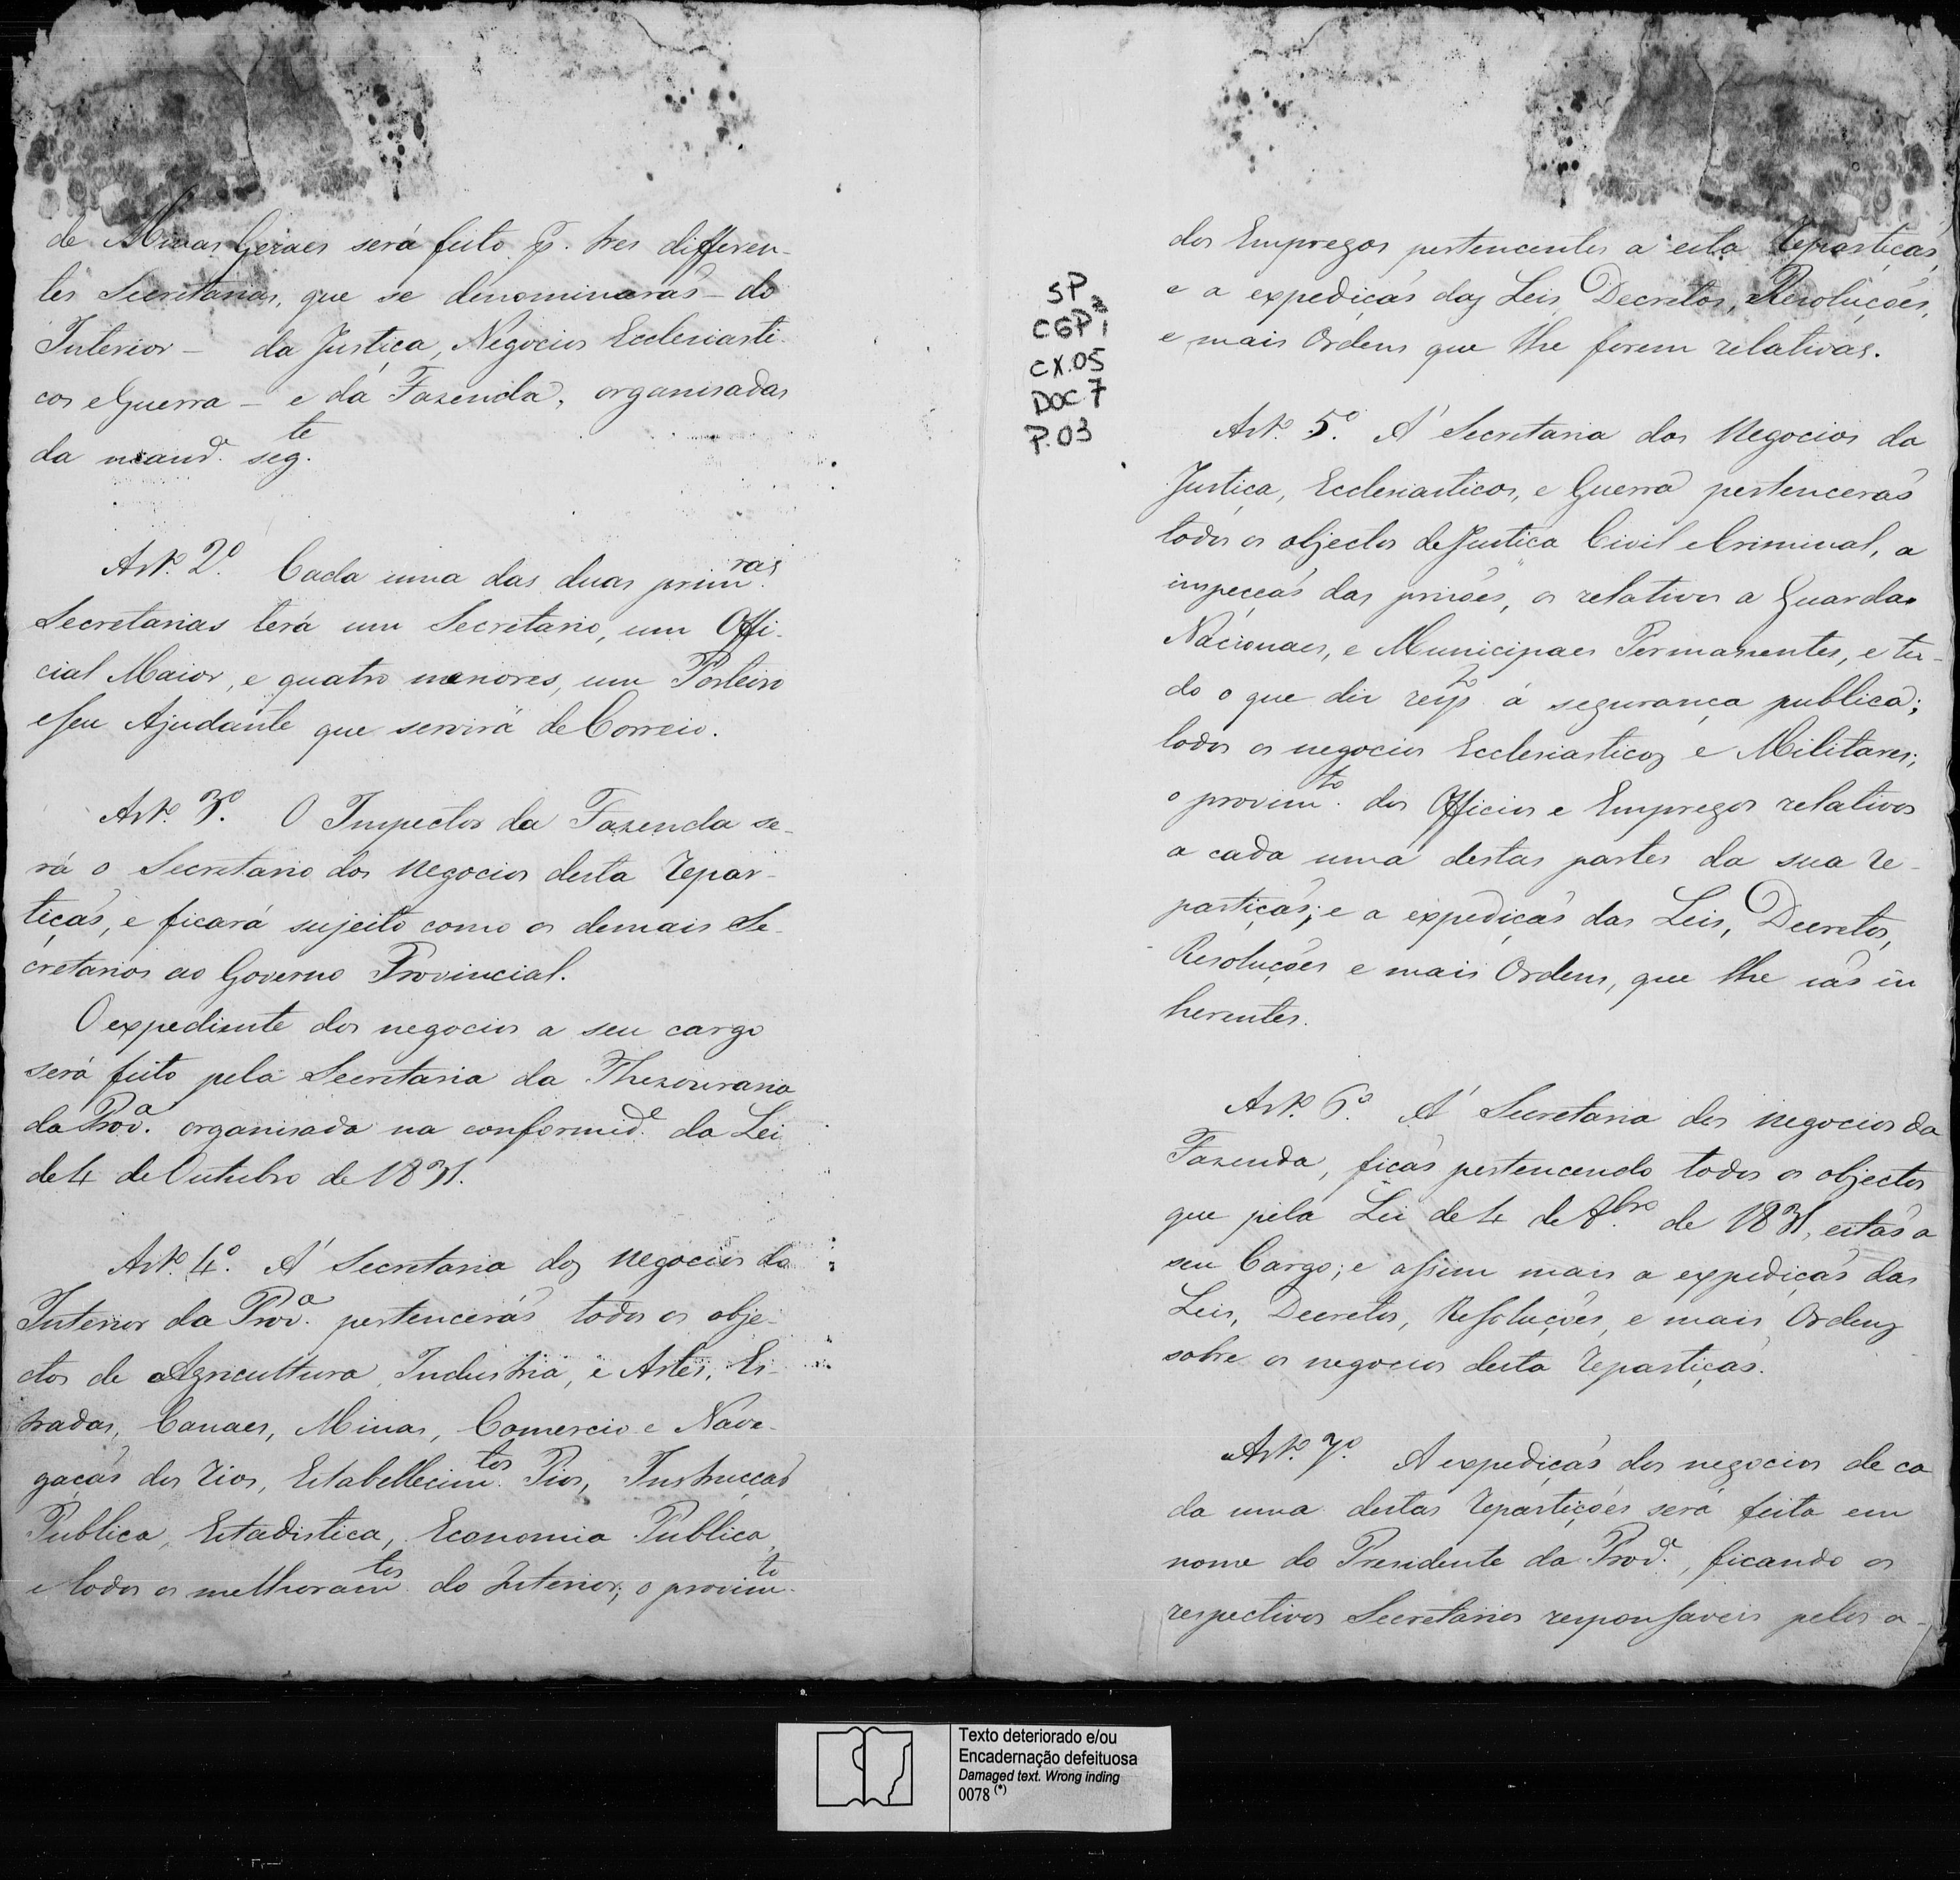 de Minas Geraes será feito p. tres differen-
tes Secretarias, que se denominaràs - do
Interior - da Justiça, Negocios Ecclesiasti-
cos e Guerra - e da Fazenda, organisadas
da man.ª seg.te
Art.º 2.º Cada uma das duas prim.ras
Secretarias terá um Secretario, um Offi-
cial Maior, e quatro menores, um Porteiro
e seu Ajudante que servirá de Correio.
Art.º 3.º O Inspector da Fazenda se-
rá o Secretario dos Negocios desta repar-
tiçaõ, e ficará sujeito como os demais Se-
cretarios ao Governo Provincial.
O expediente dos negocios a seu cargo
será feito pela Secretaria da Thesouraria
da Prov.ª organisada na conformid.e da Lei
de 4 de Outubro de 1831.
Art.º 4.º A' Secretaria dos Negocios do
Interior da Prov.ª pertenceràõ todos os obje-
ctos de Agricultura, Industria, e Artes, Es-
tradas, Canaes, Minas, Comercio e Nave-
gaçaõ dos rios, Estabellecim.tos Pios, Instrucçaõ
Publica, Estadistica, Economia Publica,
e todos os melhoram.tos do Interior; o provim.to
SP
CGP 1
CX.05
DOC.7
P.03
dos Empregos pertencentes a esta repartiçaõ,
e a expediçaõ das Leis, Decretos, Resoluções,
e mais Ordens que lhe forem relativas.
Art.º 5.º A' Secretaria dos Negocios da
Justiça, Ecclesiasticos, e Guerra pertenceràõ
todos os objectos de Justica Civil e Criminal, a
inspecçaõ das prisões, os relativos a Guardas
Nacionaes, e Municipaes Permanentes, e tu-
do o que diz resp.to á segurança publica;
todos os negocios Ecclesiasticos e Militares;
o provim.to dos Officios e Empregos relativos
a cada uma destas partes da sua re-
partiçaõ; e a expediçaõ das Leis, Decretos,
Resoluções e mais Ordens, que lhe saõ in
herentes.
Art.º 6.º A' Secretaria dos negocios da
Fazenda, ficaõ pertencendo todos os objectos
que pela Lei de 4 de 8.bro de 1831, estaõ a
seu Cargo; e assim mais a expediçaõ das
Leis, Decretos, Resoluções, e mais Ordens
sobre os negocios desta repartiçaõ.
Art.º 7.º A expediçaõ dos negocios de ca
da uma destas repartições será feita em
nome do Presidente da Prov.ª, ficando os
respectivos Secretarios responsaveis pelos a-
Texto deteriorado e/ou
Encadernação defeituosa
Damaged text. Wrong inding
0078 (*)